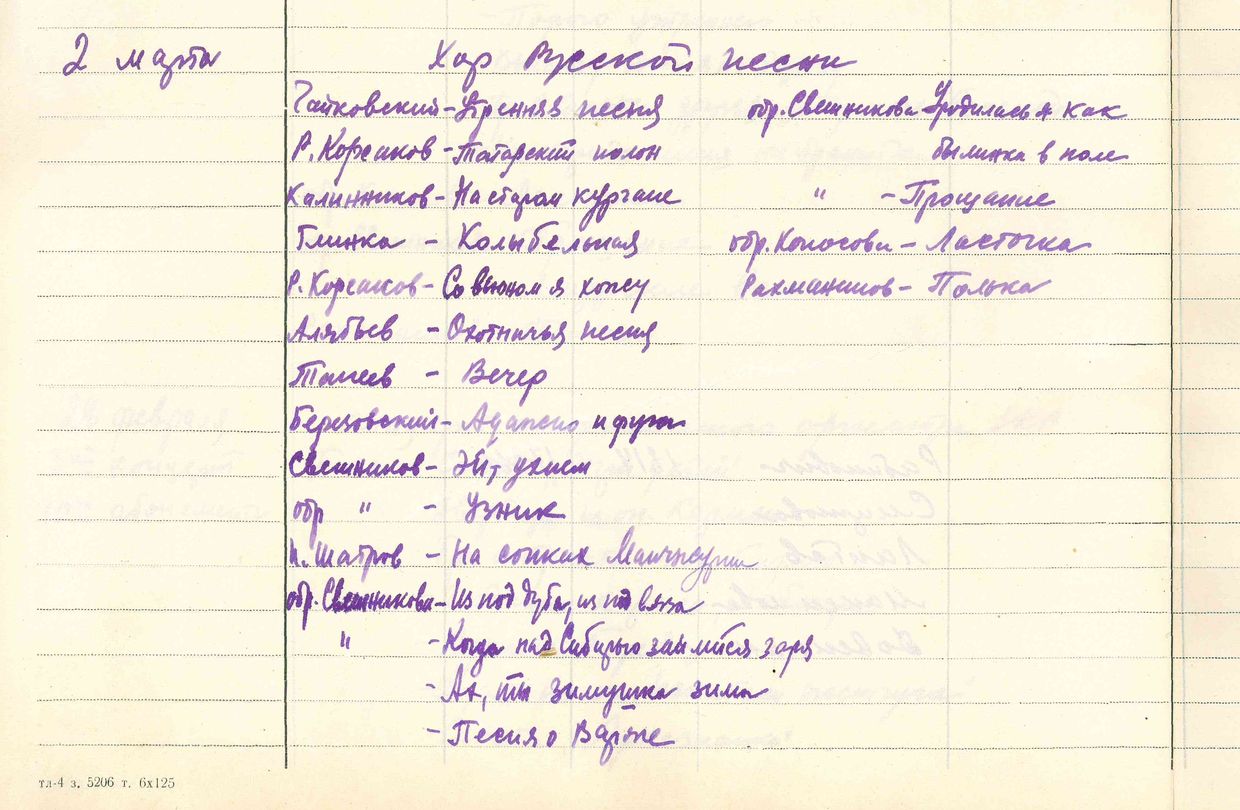 2 марта
Хор Русской песни
Чайковский - Утренняя песня
Р. Корсаков - Татарский полон
Калинников - На старом кургане
Глинка - Колыбельная
Р. Корсаков - Со вьюном я хожу
Алябьев - Охотничья песня
Танеев - Вечер
Березовский - Адажио и фуга
Свешников - Эй, ухнем
обр " - Узник
И. Шатров - На сопках Манчжурии
обр. Свешникова - Из под дуба, из под вяза
" - Когда над Сибирью займётся заря
- Ах, ты зимушка зима
- Песня о Варяге
обр. Свешникова - Уродилась я как
былинка в поле
" - Прощание
обр. Колосова - Ласточка
Рахманинов - Полька
тл-4 з. 5206 т. 6х125